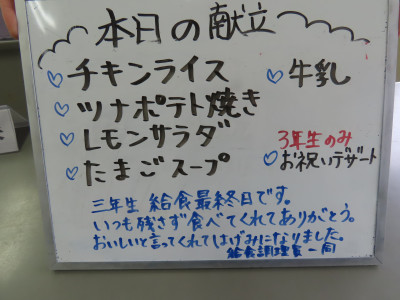 本日の献立
♡チキンライス ♡牛乳
♡ツナポテト焼き
♡レモンサラダ 3年生のみ
♡たまごスープ ♡お祝いデザート
三年生 給食最終日です。
いつも残さず食べてくれてありがとう。
おいしいと言ってくれてはげみになりました。
給食調理員一同